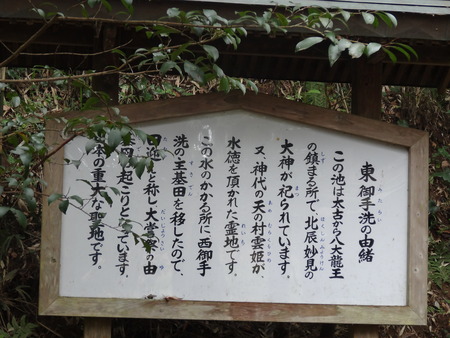 東御手洗の由緒
この池は太古から八大龍王
の鎮まる所で、北辰妙見の
大神が祀られています。
又、神代の天の村雲姫が、
水徳を頂かれた霊地です。
この水のかかる所に西御手
洗の主基田を移したので、
と称し大嘗祭の由
田の起こりとなっています。
本の重大な聖地です。